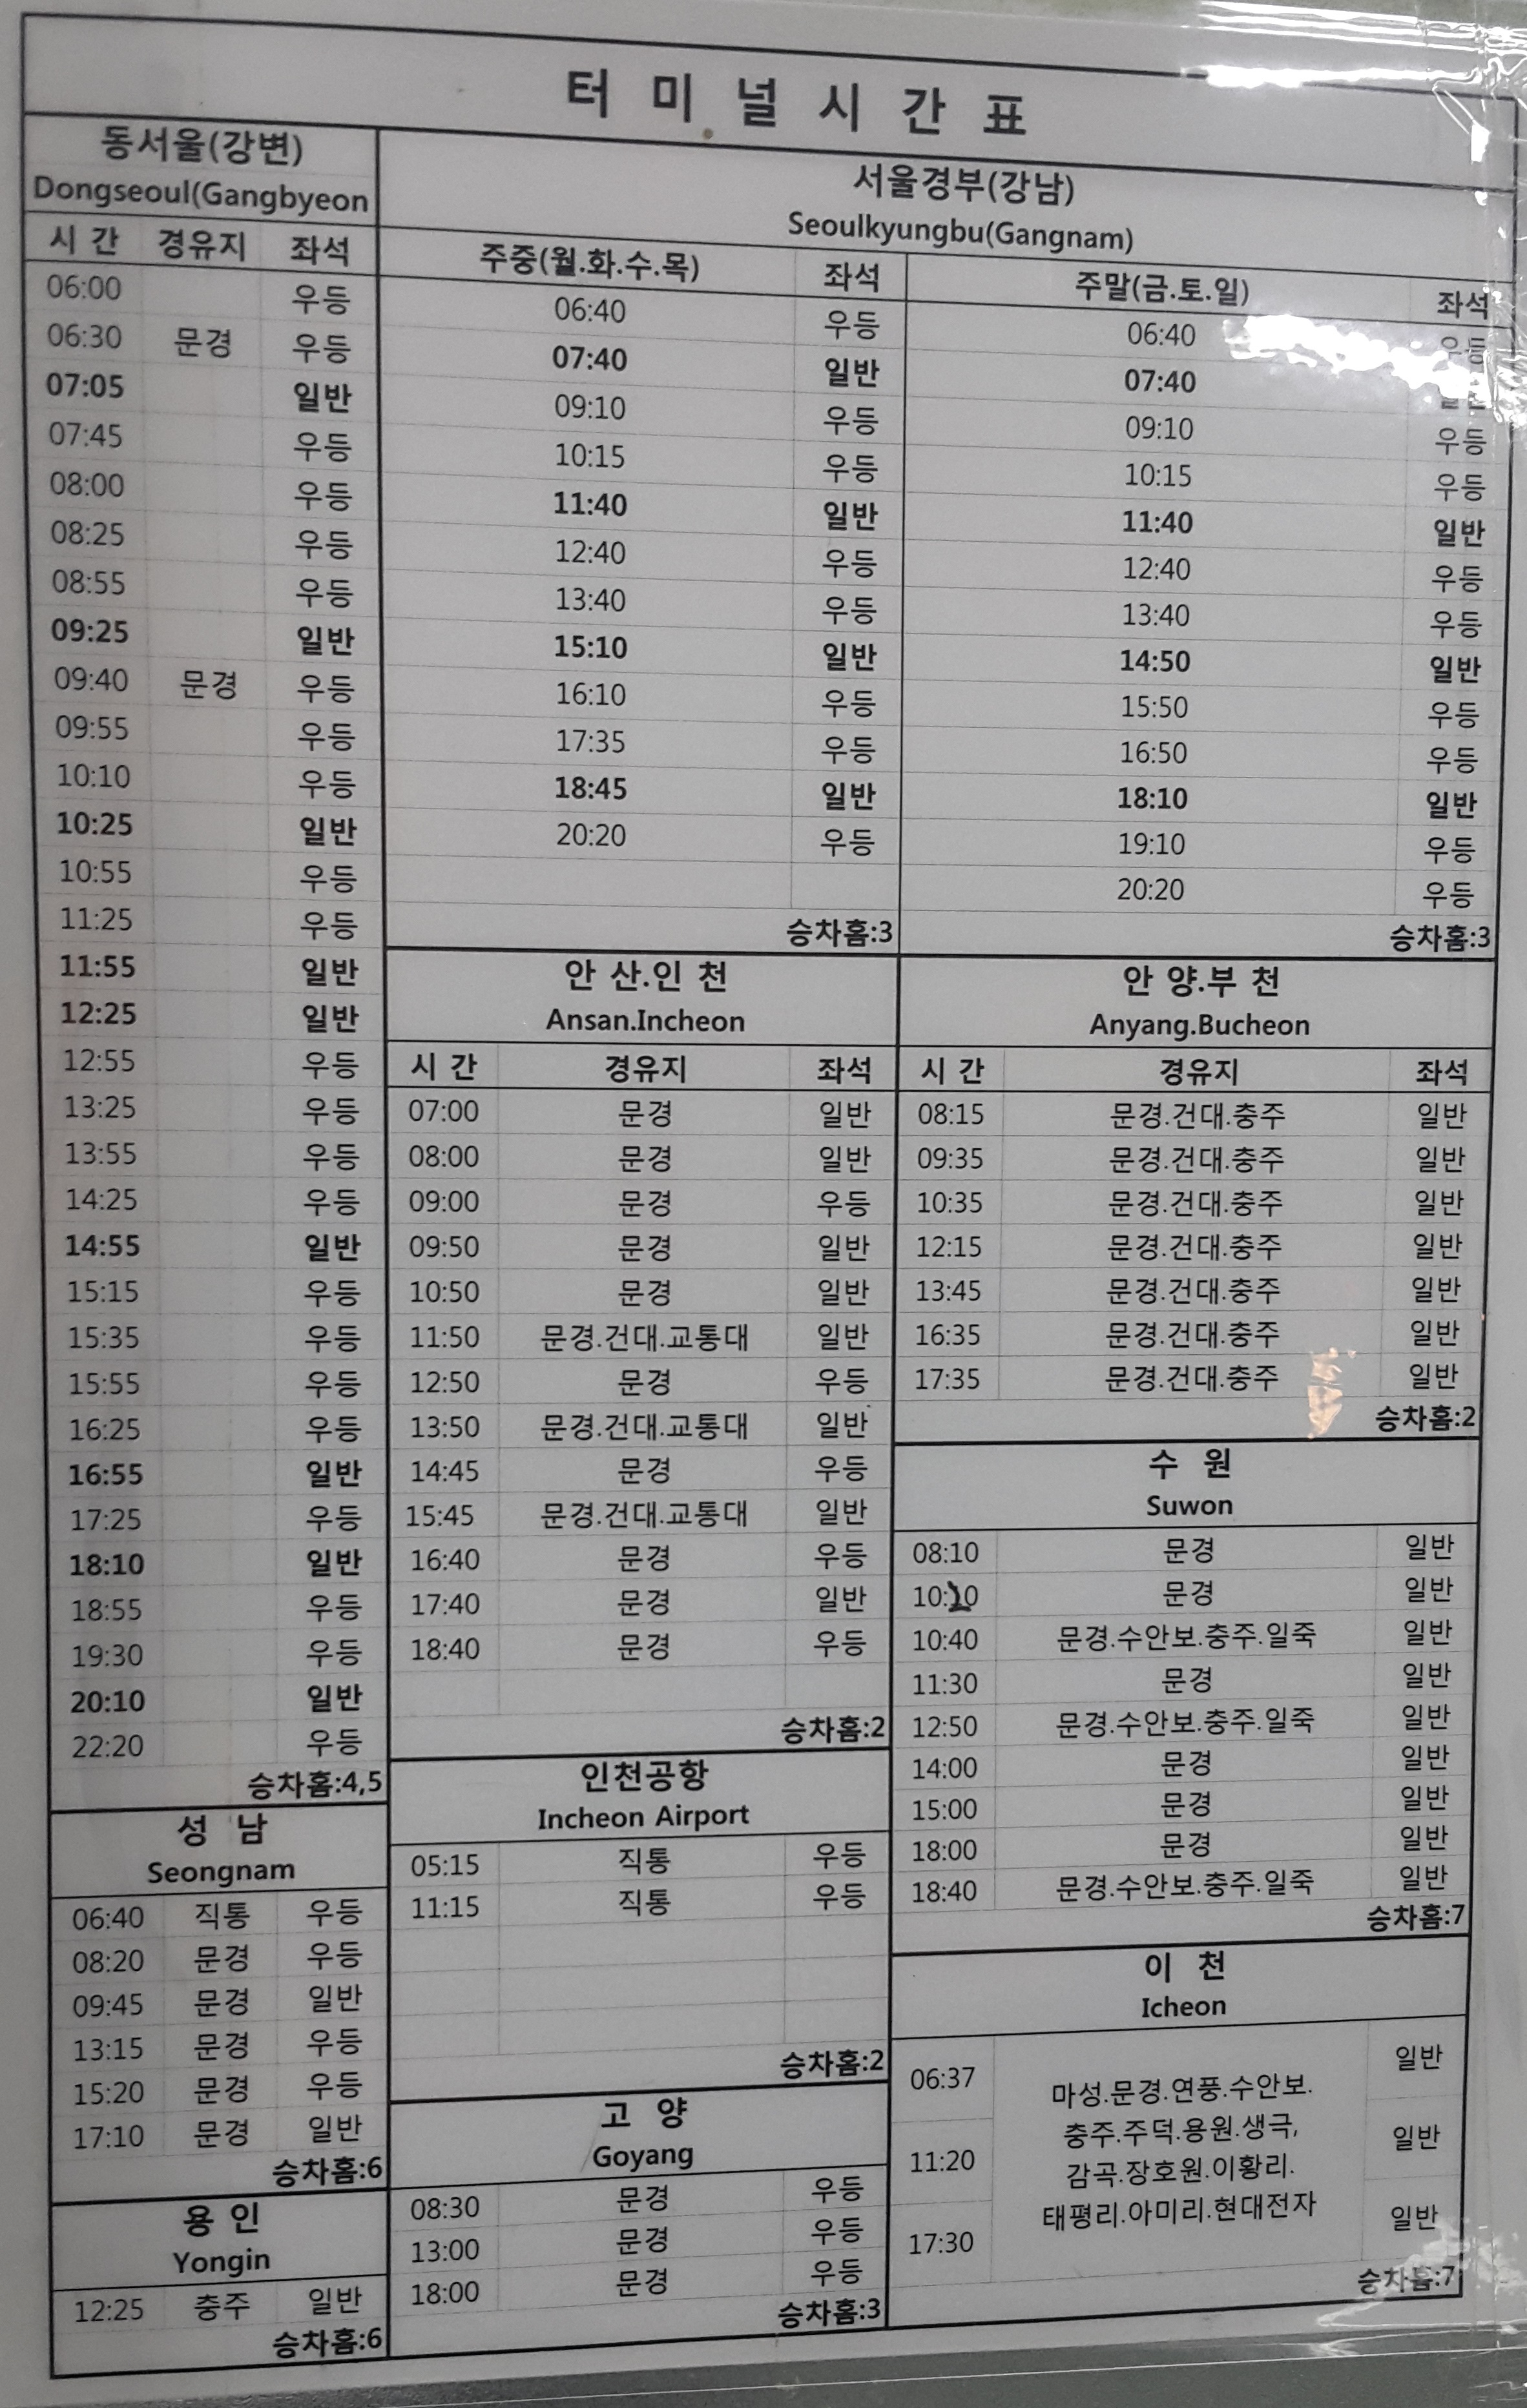 터 미 널 시 간 표
동서울(강변)
Dongseoul(Gangbyeon
시 간 경유지 좌석
06:00 우등
06:30 문경 우등
07:05 일반
07:45 우등
08:00 우등
08:25 우등
08:55 우등
09:25 일반
09:40 문경 우등
09:55 우등
10:10 우등
10:25 일반
10:55 우등
11:25 우등
11:55 일반
12:25 일반
12:55 우등
13:25 우등
13:55 우등
14:25 우등
14:55 일반
15:15 우등
15:35 우등
15:55 우등
16:25 우등
16:55 일반
17:25 우등
18:10 일반
18:55 우등
19:30 우등
20:10 일반
22:20 우등
승차홈:4,5
성 남
Seongnam
06:40 직통 우등
08:20 문경 우등
09:45 문경 일반
13:15 문경 우등
15:20 문경 우등
17:10 문경 일반
승차홈:6
용 인
Yongin
12:25 충주 일반
승차홈:6
서울경부(강남)
Seoulkyungbu(Gangnam)
주중(월.화.수.목) 좌석 주말(금.토.일) 좌석
06:40 우등 06:40 우등
07:40 일반 07:40
09:10 우등 09:10 우등
10:15 우등 10:15 우등
11:40 일반 11:40 일반
12:40 우등 12:40 우등
13:40 우등 13:40 우등
15:10 일반 14:50 일반
16:10 우등 15:50 우등
17:35 우등 16:50 우등
18:45 일반 18:10 일반
20:20 우등 19:10 우등
20:20 우등
승차홈:3 승차홈:3
안 산.인 천
Ansan.Incheon
시 간 경유지 좌석
07:00 문경 일반
08:00 문경 일반
09:00 문경 우등
09:50 문경 일반
10:50 문경 일반
11:50 문경.건대.교통대 일반
12:50 문경 우등
13:50 문경.건대.교통대 일반
14:45 문경 우등
15:45 문경.건대.교통대 일반
16:40 문경 우등
17:40 문경 일반
18:40 문경 우등
승차홈:2
인천공항
Incheon Airport
05:15 직통 우등
11:15 직통 우등
승차홈:2
고 양
Goyang
08:30 문경 우등
13:00 문경 우등
18:00 문경 우등
승차홈:3
안 양.부 천
Anyang.Bucheon
시 간 경유지 좌석
08:15 문경.건대.충주 일반
09:35 문경.건대.충주 일반
10:35 문경.건대.충주 일반
12:15 문경.건대.충주 일반
13:45 문경.건대.충주 일반
16:35 문경.건대.충주 일반
17:35 문경.건대.충주 일반
승차홈:2
수 원
Suwon
08:10 문경 일반
문경 일반
10:40 문경.수안보.충주.일죽 일반
11:30 문경 일반
12:50 문경.수안보.충주.일죽 일반
14:00 문경 일반
15:00 문경 일반
18:00 문경 일반
18:40 문경.수안보.충주.일죽 일반
승차홈:7
이 천
Icheon
06:37 일반
마성.문경.연풍.수안보.
충주.주덕.용원.생극,
11:20 일반
감곡.장호원.이황리.
태평리.아미리.현대전자
17:30 일반
승차홈:7